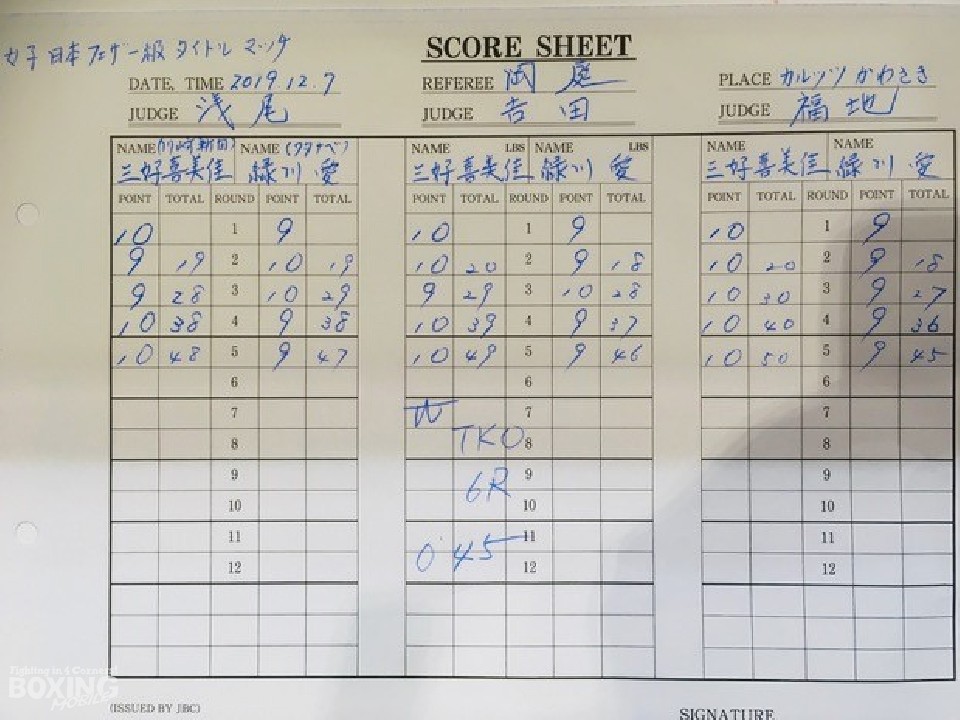 女子日本フェザー級タイトルマッチ
SCORE SHEET
DATE, TIME 2019.12.7 REFEREE 岡庭 PLACE カルッツかわさき
JUDGE 浅尾 JUDGE 吉田 JUDGE 福地
NAME (川崎新田) NAME (ワタナベ) NAME LBS NAME LBS NAME NAME
三好喜美佳 緑川 愛 三好喜美佳 緑川 愛 三好喜美佳 緑川 愛
POINT TOTAL ROUND POINT TOTAL POINT TOTAL ROUND POINT TOTAL POINT TOTAL ROUND POINT TOTAL
10 1 9 10 1 9 10 1 9
9 19 2 10 19 10 20 2 9 18 10 20 2 9 18
9 28 3 10 29 9 29 3 10 28 10 30 3 9 27
10 38 4 9 38 10 39 4 9 37 10 40 4 9 36
10 48 5 9 47 10 49 5 9 46 10 50 5 9 45
6 6 6
7 W 7 7
8 TKO 8 8
9 6R 9 9
10 10 10
11 0'45 11 11
12 12 12
Fighting in 4 Corners!
BOXING
MOBILE
(ISSUED BY JBC) SIGNATURE